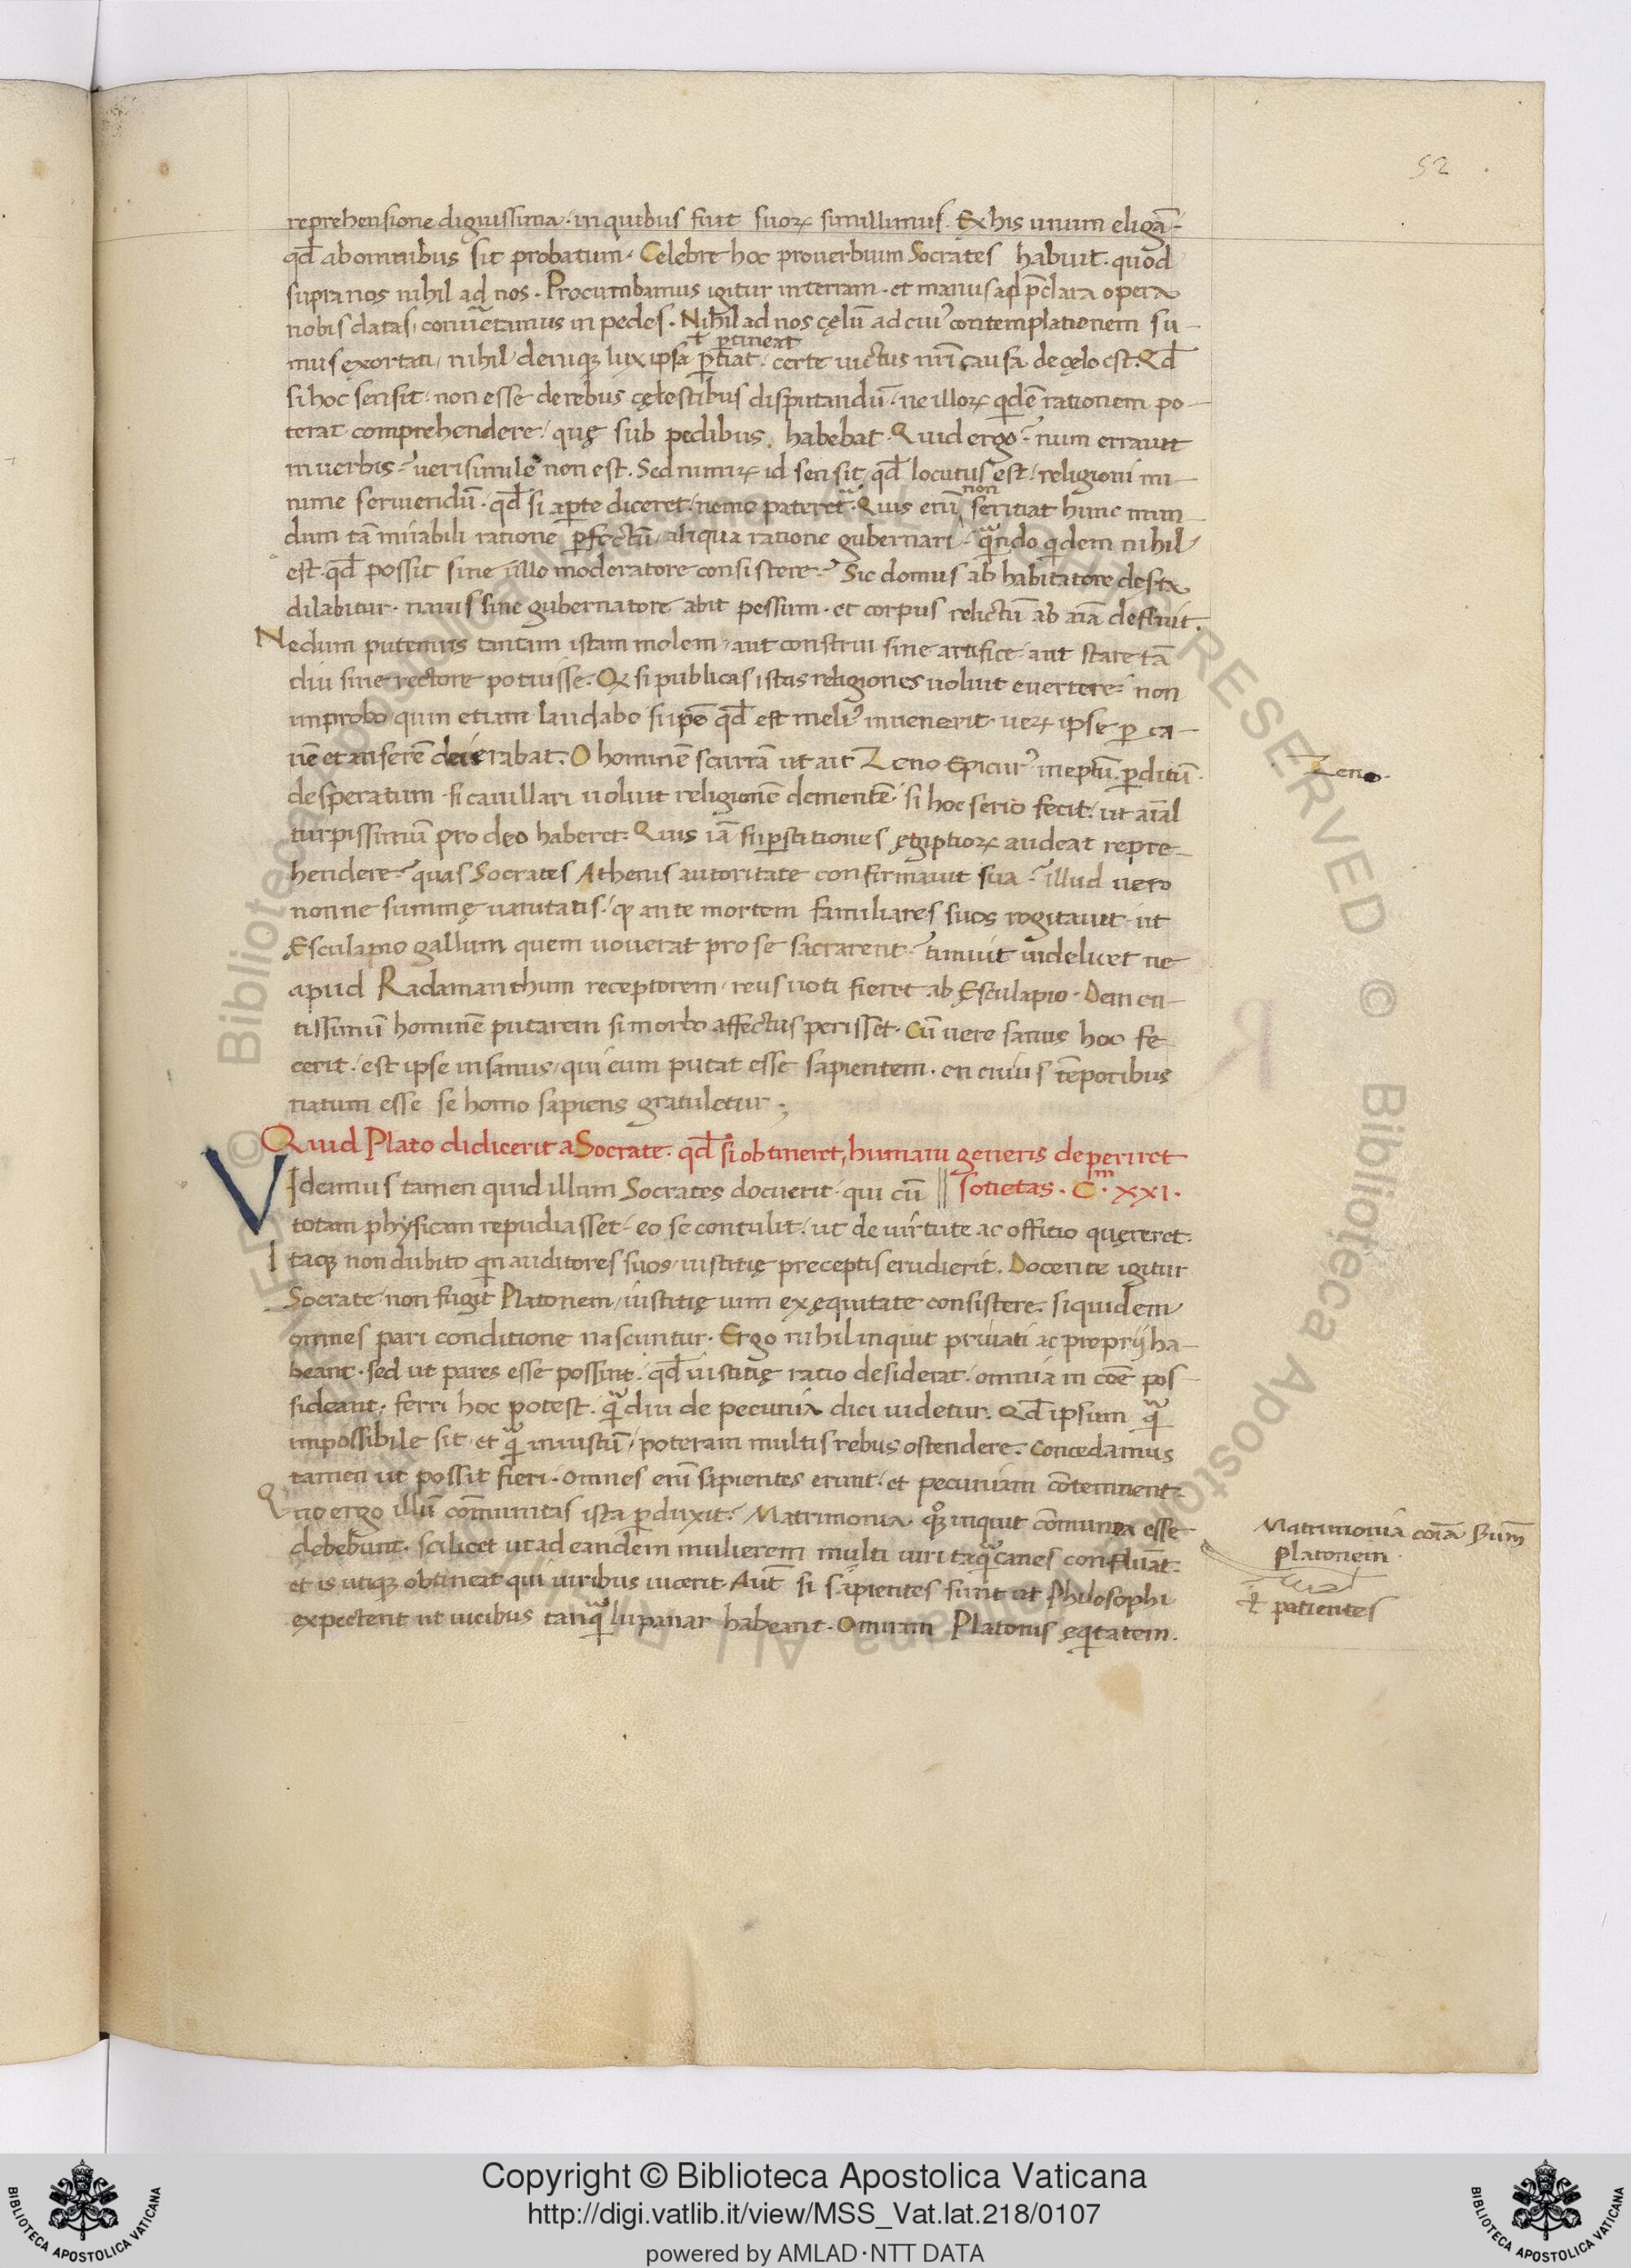 52
reprehensione dignissima · in quibus fuit suoꝝ simillimus. Ex his unum eligã ·
qđ ab omnibus sit probatum · Celebre hoc prouerbium Socrates habuit · quod
supra nos nihil ad nos · Procumbamus igitur in terram · et manus ad p̄clara opera
nobis datas, conuertamus in pedes · Nihil ad nos cęlũ ad cui⁹ contemplationem su-
ł ꝑtineat
mus exortati, nihil deniqꝫ lux ipsa ꝑtiat · certe uictus nr̃i causa de cęlo est. Qđ
si hoc sensit · non esse de rebus cęlestibus disputandũ · ne illoꝝ qdẽ rationem po-
terat comprehendere · quę sub pedibus habebat · Quid ergo? num errauit
in uerbis? uerisimile non est. Sed nimiꝝ id sensit qđ locutus est, religioni mi-
non
nime seruiendũ · qđ si aꝑte diceret, nemo pateret᷑ · Quis enĩ sentiat hunc mun-
dum tã mirabili ratione ꝑfectũ, aliqua ratione gubernari · qñdo qdem nihil
est · qđ possit sine ullo moderatore consistere? Sic domus ab habitatore des̃ta
dilabitur · nauis sine gubernatore abit pessum · et corpus relictũ ab aĩa defluit.
Nedum putemus tantam istam molem, aut construi sine artifice, aut stare tã
diu sine rectore potuisse. Qꝫ si publicas istas religiones uoluit euertere, non
improbo quin etiam laudabo si ipse qđ est meli⁹ inuenerit · ueꝝ ipse ꝑ ca-
nẽ et anserẽ deierabat. O hominẽ scurrã ut ait Zeno Epicur⁹ ineptũ · ꝑditũ ·
Zeno.
desperatum · si cauillari uoluit religionẽ dementẽ, si hoc serio fecit, ut aĩal
turpissimũ pro deo haberet · Quis iã suꝑstitiones ęgiptioꝝ audeat repre-
hendere? quas Socrates Athenis autoritate confirmauit sua? illud uero
nonne summę uanitatis · ꝙ ante mortem familiares suos rogitauit · ut
Ęsculapio gallum quem uouerat pro se sacrarent? timuit uidelicet ne
apud Radamanthum receptorem, reus uoti fieret ab Ęsculapio · Demen-
tissimũ hominẽ putarem si morbo affectus perisset · Cũ uere sanus hoc fe-
cerit · est ipse insanus, qui eum putat esse sapientem · en cuius tẽporibus
natum esse se homo sapiens gratuletur;
Quid Plato didicerit a Socrate · qđ si obtineret, humani generis deperiret
VIdeamus tamen quid illum Socrates docuerit · qui cũ || sotietas · C·ᵐ XXI ·
totam physicam repudiasset · eo se contulit, ut de uirtute ac offitio quęreret ·
Itaqꝫ non dubito qn auditores suos, iustitię preceptis erudierit. Docente igitur
Socrate, non fugit Platonem, iustitię uim ex ęquitate consistere · siquidem
omnes pari conditione nascuntur · Ergo nihil inquit priuati ac proprij ha-
beant · sed ut pares esse possint · qđ iustitię ratio desiderat, omnia in cõe pos-
sideant, ferri hoc potest · q̃ diu de pecunia dici uidetur. Qđ ipsum q̃
impossibile sit, et q̃ iniustũ, poteram multis rebus ostendere. Concedamus
tamen ut possit fieri · omnes enĩ sapientes erunt, et pecuniam cõtemnent ·
Quo ergo illũ cõmunitas ista ꝑduxit? Matrimonia qꝫ inquit cõmunia esse
debebunt · scilicet ut ad eandem mulierem multi uiri taq̃ canes confluãt ·
et is utiqꝫ obtineat qui uiribus uicerit · Aut̃ si sapientes sunt ut Philosophi
expectent ut uicibus tanq̃ lupanar habeant · O miram Platonis ęqitatem.
Matrimonia cõia sũm
Platonem ·
ł patientes